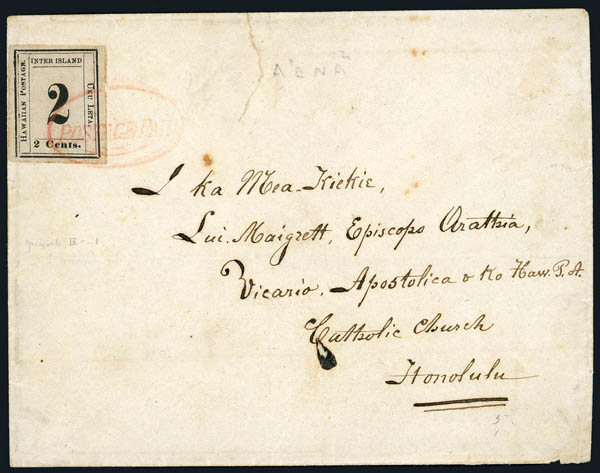 INTER ISLAND
HAWAIIAN POSTAGE.
2
UKU LETA.
2 Cents.
POSTAGE PAID
A'ENA
I ka Mea-Kiekie,
Lui. Maigrett, Episcopo Arathia,
Vicario. Apostolica o Ko Haw. P. A.
Catholic Church
Honolulu
5